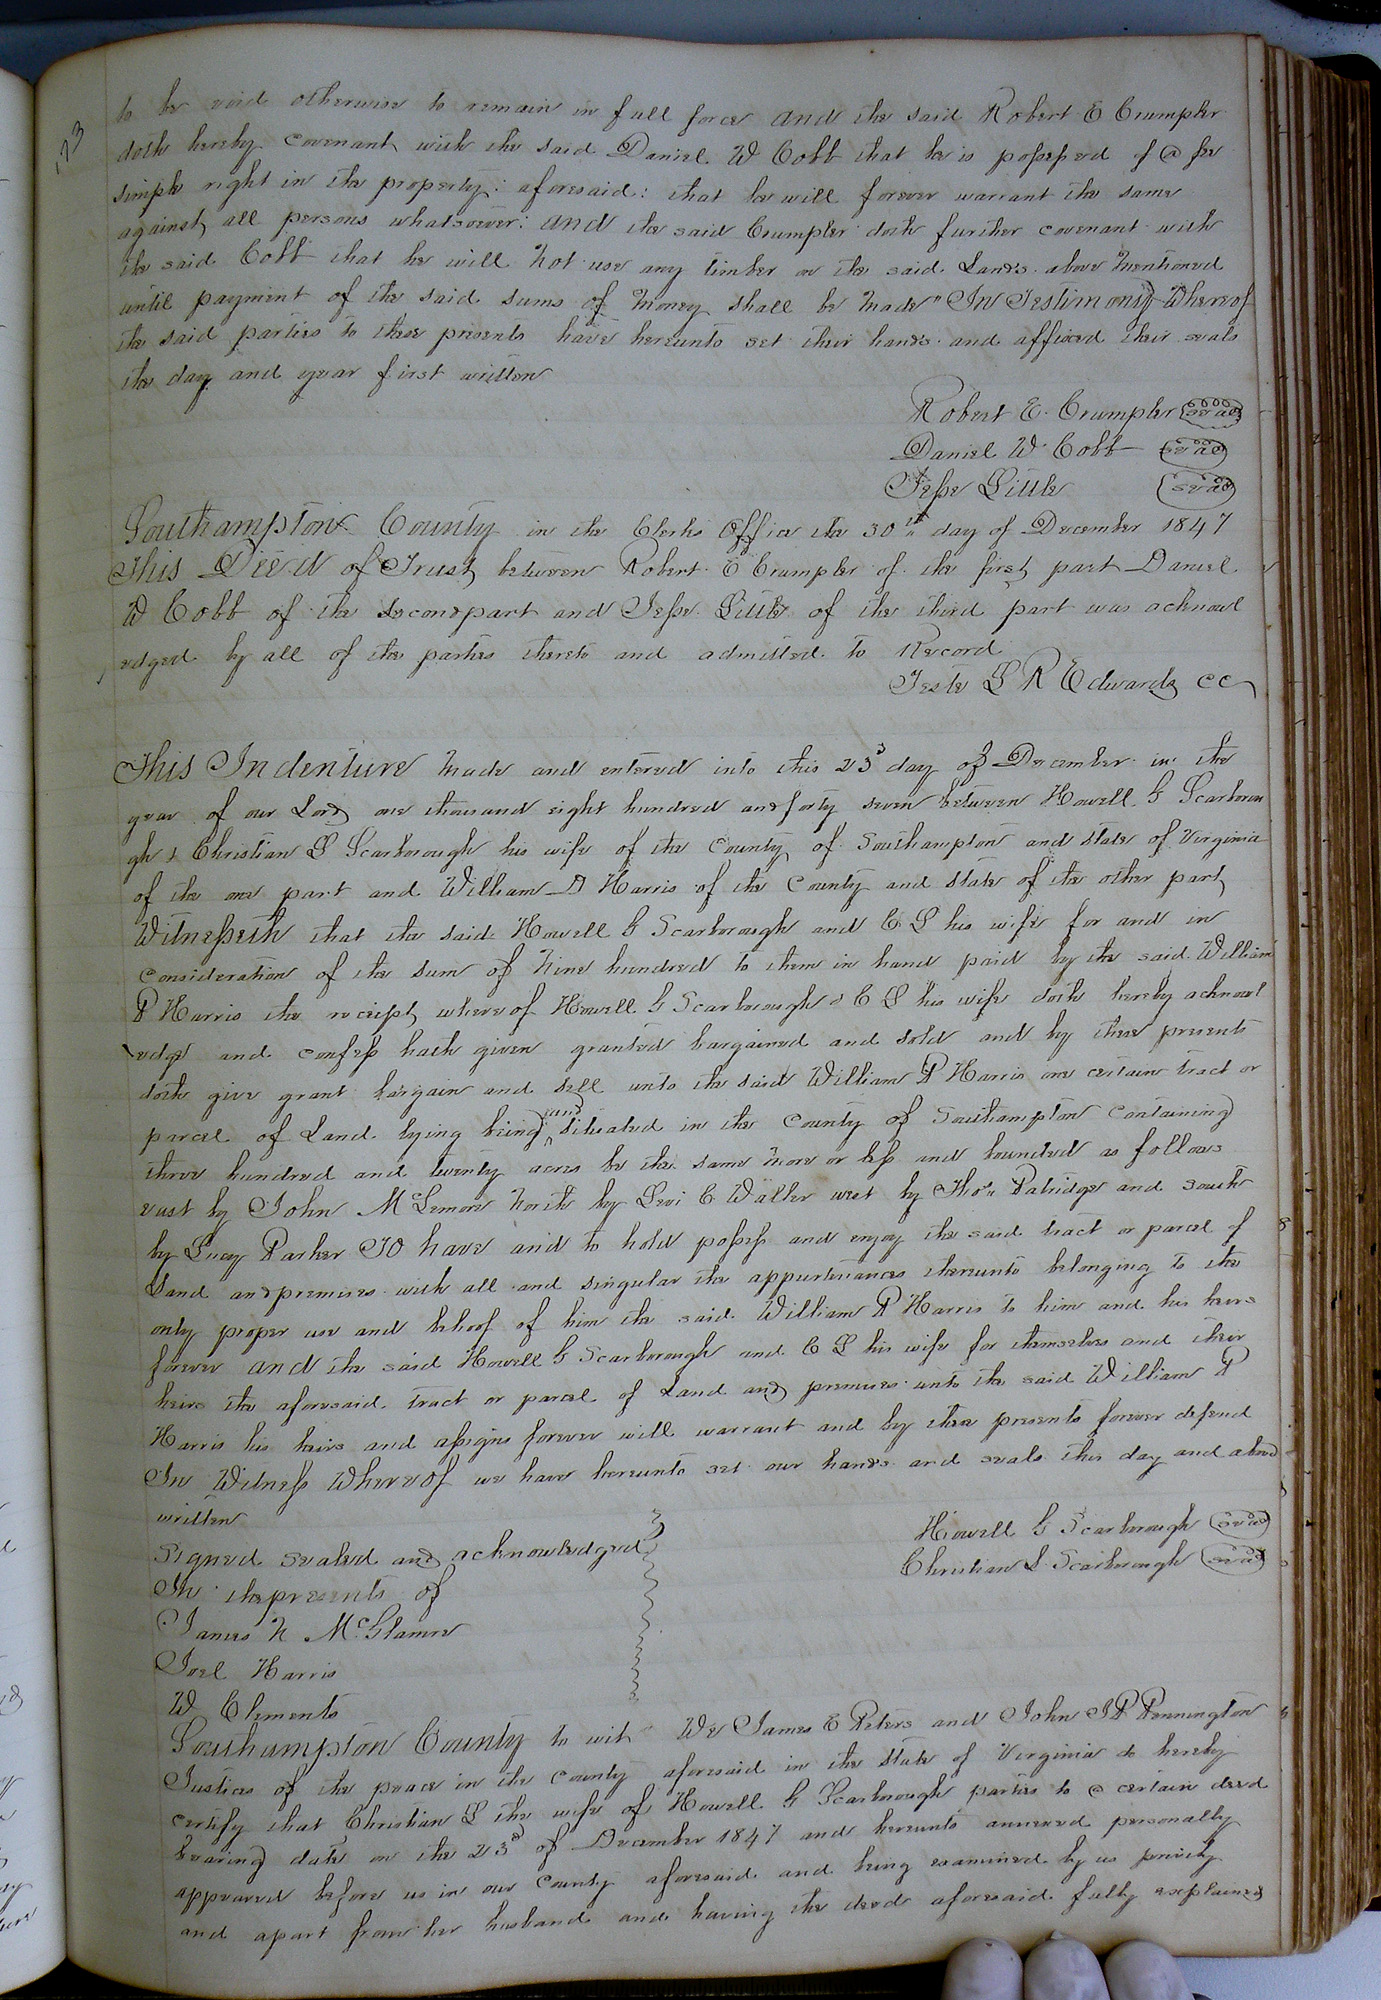 173
to be void otherwise to remain in full force and the said Robert E Crumpler
doth hereby covenant with the said Daniel W Cobb that he is possessed of a fee
simple right in the property: aforesaid: that he will forever warrant the same
against all persons whatsoever: and the said Crumpler doth further covenant with
the said Cobb that he will not use any timber on the said Lands above mentioned
until payment of the said sums of money shall be made" In Testimony Whereof
the said parties to these presents have hereunto set their hands and affixed their seals
the day and year first written
Robert E. Crumpler seal
Daniel W Cobb seal
Jesse Little seal
Southampton County in the Clerks Office the 30th day of December 1847
This Deed of Trust between Robert E Crumpler of the first part Daniel
W Cobb of the second part and Jesse Little of the third part was acknowl
edged by all of the parties thereto and admitted to Record
Teste L R Edwards CC
This Indenture made and entered into this 23d day of December in the
year of our Lord one thousand eight hundred and forty seven between Howell G Scarborou
gh & Christian L Scarborough his wife of the County of Southampton and State of Virginia
of the one part and William P Harris of the County and State of the other part
Witnesseth that the said Howell G Scarborough and C L his wife for and in
consideration of the sum of nine hundred to them in hand paid by the said William
P Harris the receipt whereof Howell G Scarborough & C L his wife doth hereby acknowl
edge and confess hath given granted bargained and sold and by these presents
doth give grant bargain and sell unto the said William P Harris one certain tract or
parcel of Land lying being and situated in the County of Southampton containing
three hundred and twenty acres be the same more or less and bounded as follows
east by John McLemore north by Levi C Waller west by Thos Patridge and south
by Lucy Parker To have and to hold possess and enjoy the said tract or parcel of
Land and premises with all and singular the appurtenances thereunto belonging to the
only proper use and behoof of him the said William P Harris to him and his heirs
forever and the said Howell G Scarborough and C L his wife for themselves and their
heirs the aforesaid tract or parcel of Land and premises unto the said William P
Harris his heirs and assigns forever will warrant and by these presents forever defend
In Witness Whereof we have hereunto set our hands and seals this day and above
written
Howell G Scarborough seal
Christian L Scarborough seal
Signed sealed and acknowledged
In the presents of
James N McGlamre
Joel Harris
W Clements
Southampton County to wit We James E Peters and John J P Pennington
Justices of the peace in the county aforesaid in the State of Virginia do hereby
certify that Christian L the wife of Howell G Scarborough parties to a certain deed
bearing date on the 23d of December 1847 and hereunto annexed personally
appeared before us in our County aforesaid and being examined by us privily
and apart from her husband and having the deed aforesaid fully explained